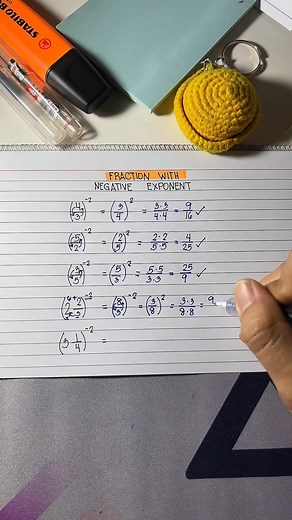 STABILO BOSS
FRACTION WITH
NEGATIVE EXPONENT
(4/3)⁻² = (3/4)² = 3·3/4·4 = 9/16 ✓
(5/2)⁻² = (2/5)² = 2·2/5·5 = 4/25 ✓
(3/5)⁻² = (5/3)² = 5·5/3·3 = 25/9 ✓
(2 2/3)⁻² = (8/3)⁻² = (3/8)² = 3·3/8·8 = 9
(3 1/4)⁻² =